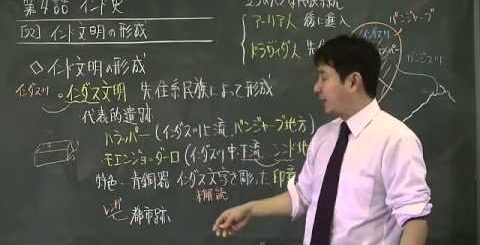 第4話 インド史
[52] インド文明の形成
◇インド文明の形成
インダス川
インダス文明 先住系民族によって形成
代表的遺跡
ハラッパー(インダス川上流 パンジャーブ地方)
モエンジョ=ダーロ(インダス川中下流 シンド地
特色・青銅器 インダス文字を彫った印章
未解読
レンガ 都市跡
アーリア人 後に進入
ドラヴィダ人 先
パンジャーブ
インダス川
ガンジス川